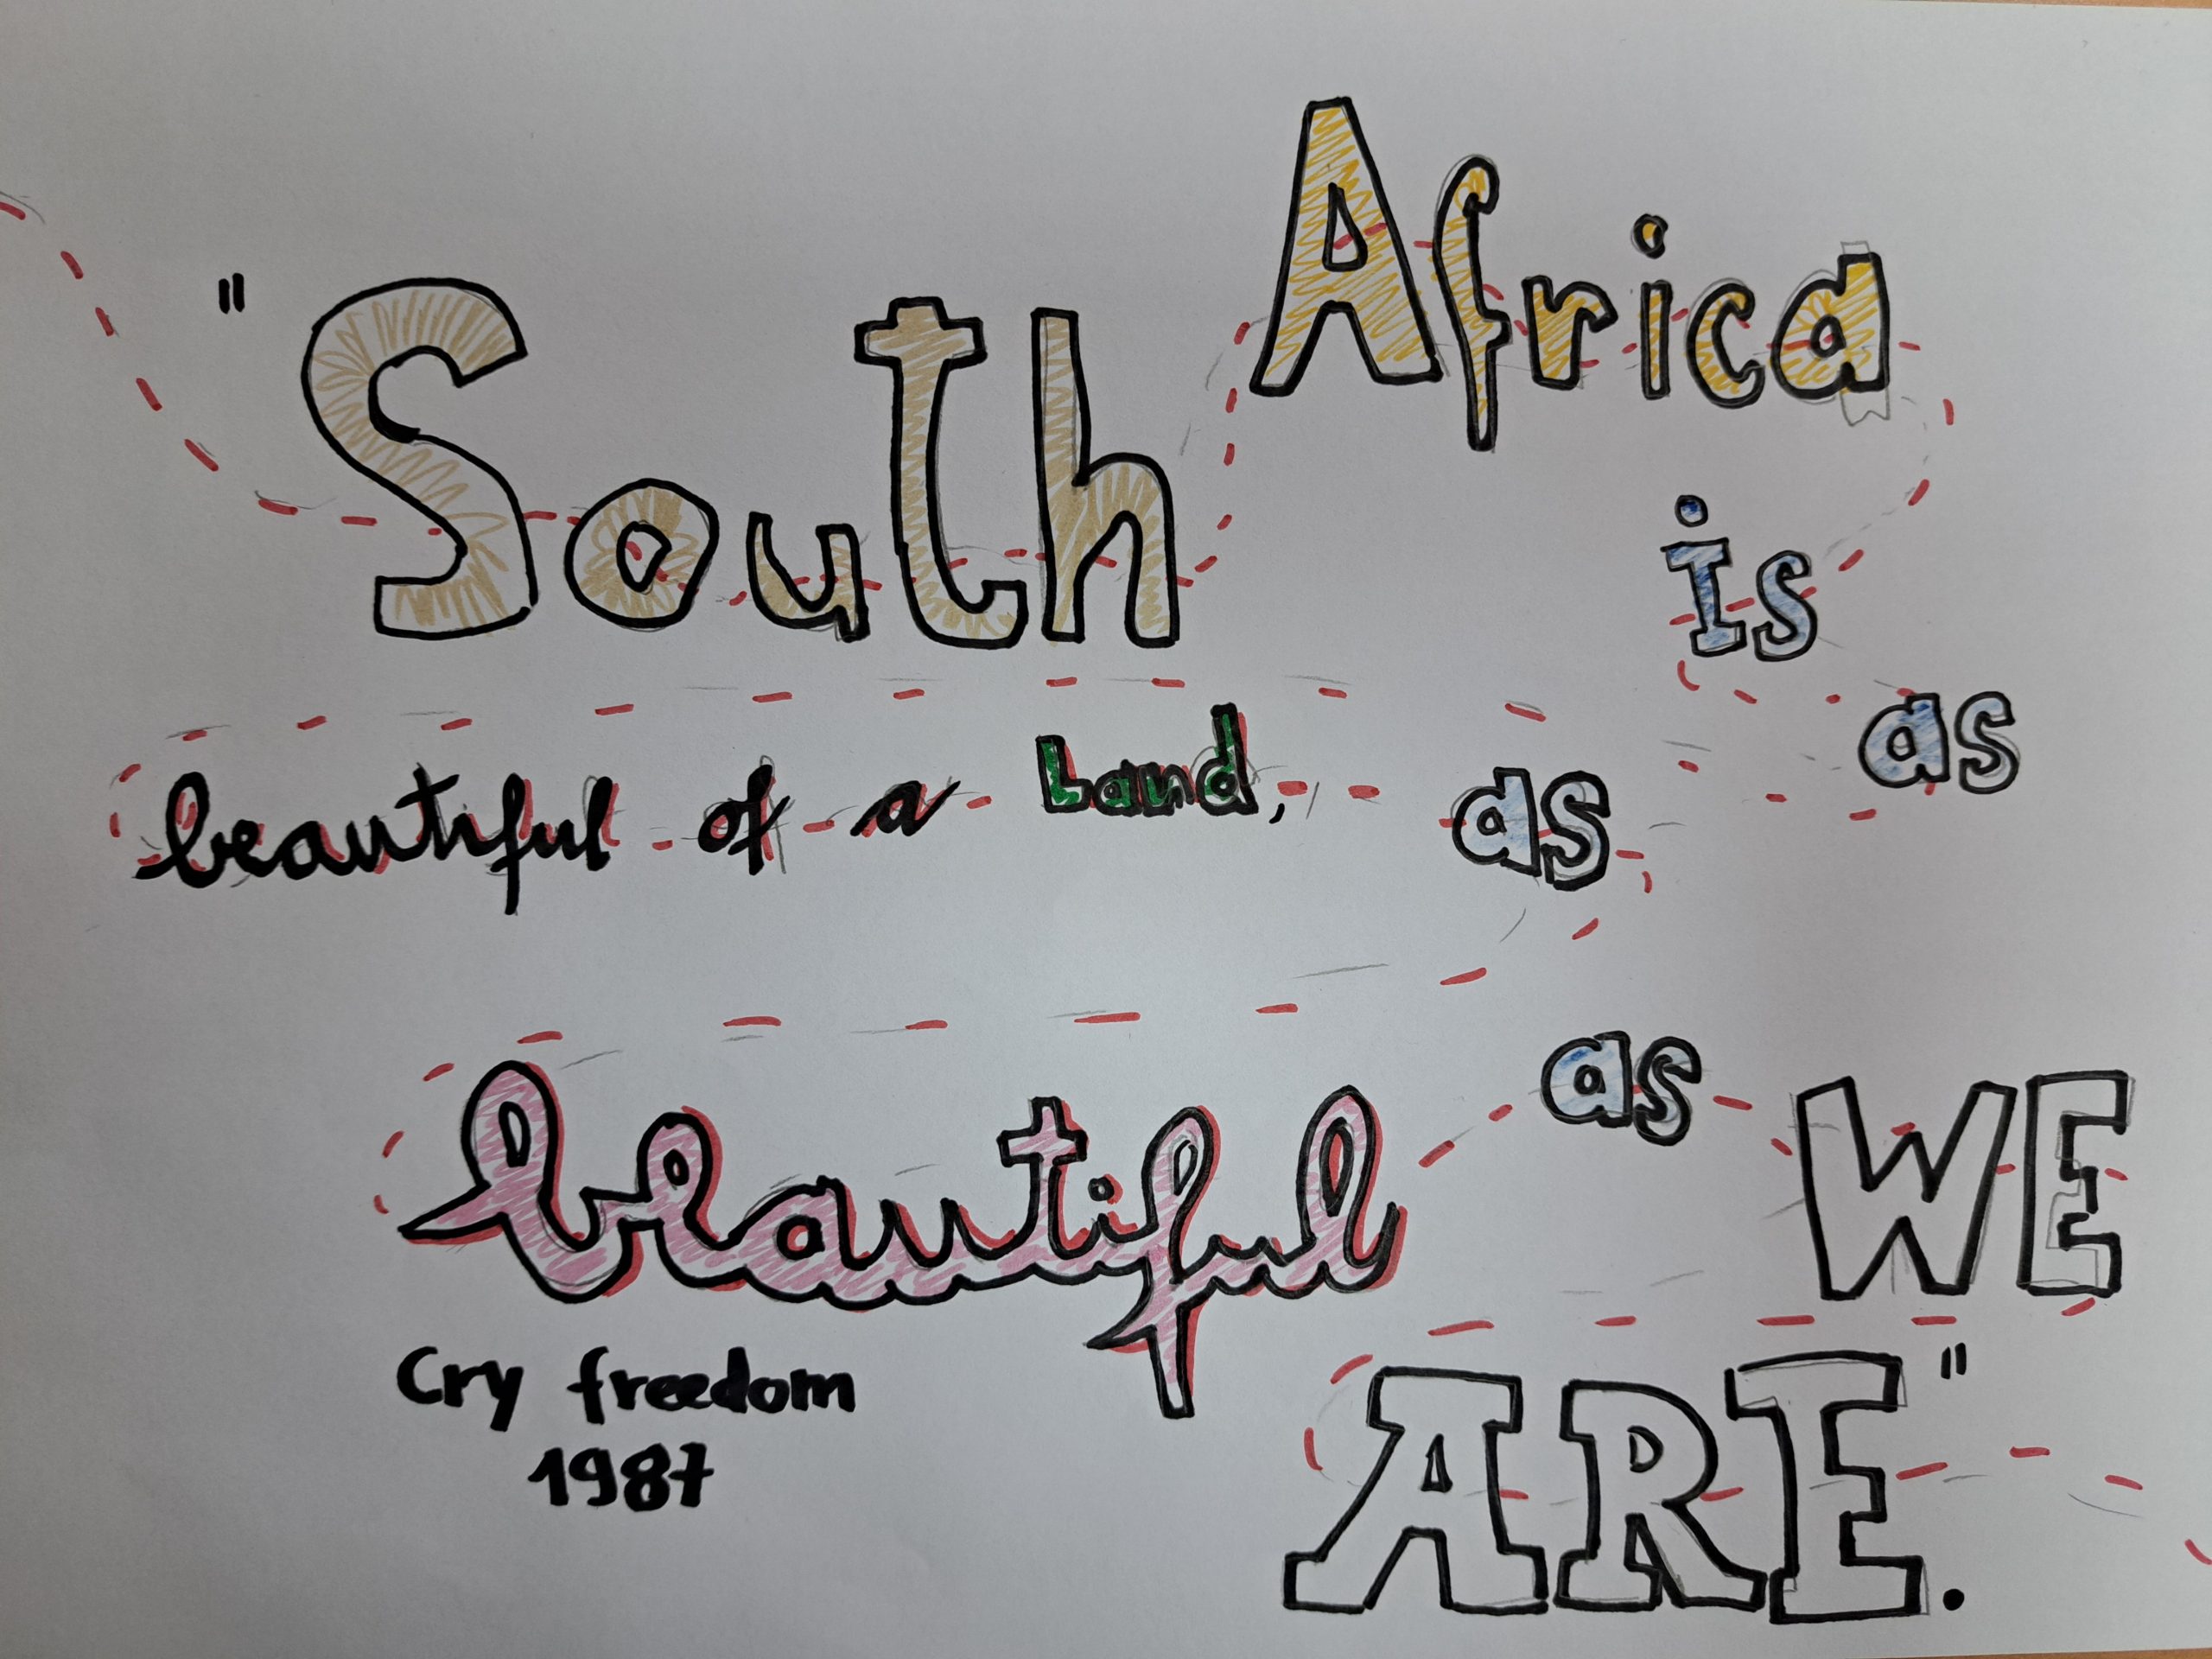 "South Africa
is
as
beautiful of a Land, as
beautiful as WE
ARE".
Cry freedom
1987